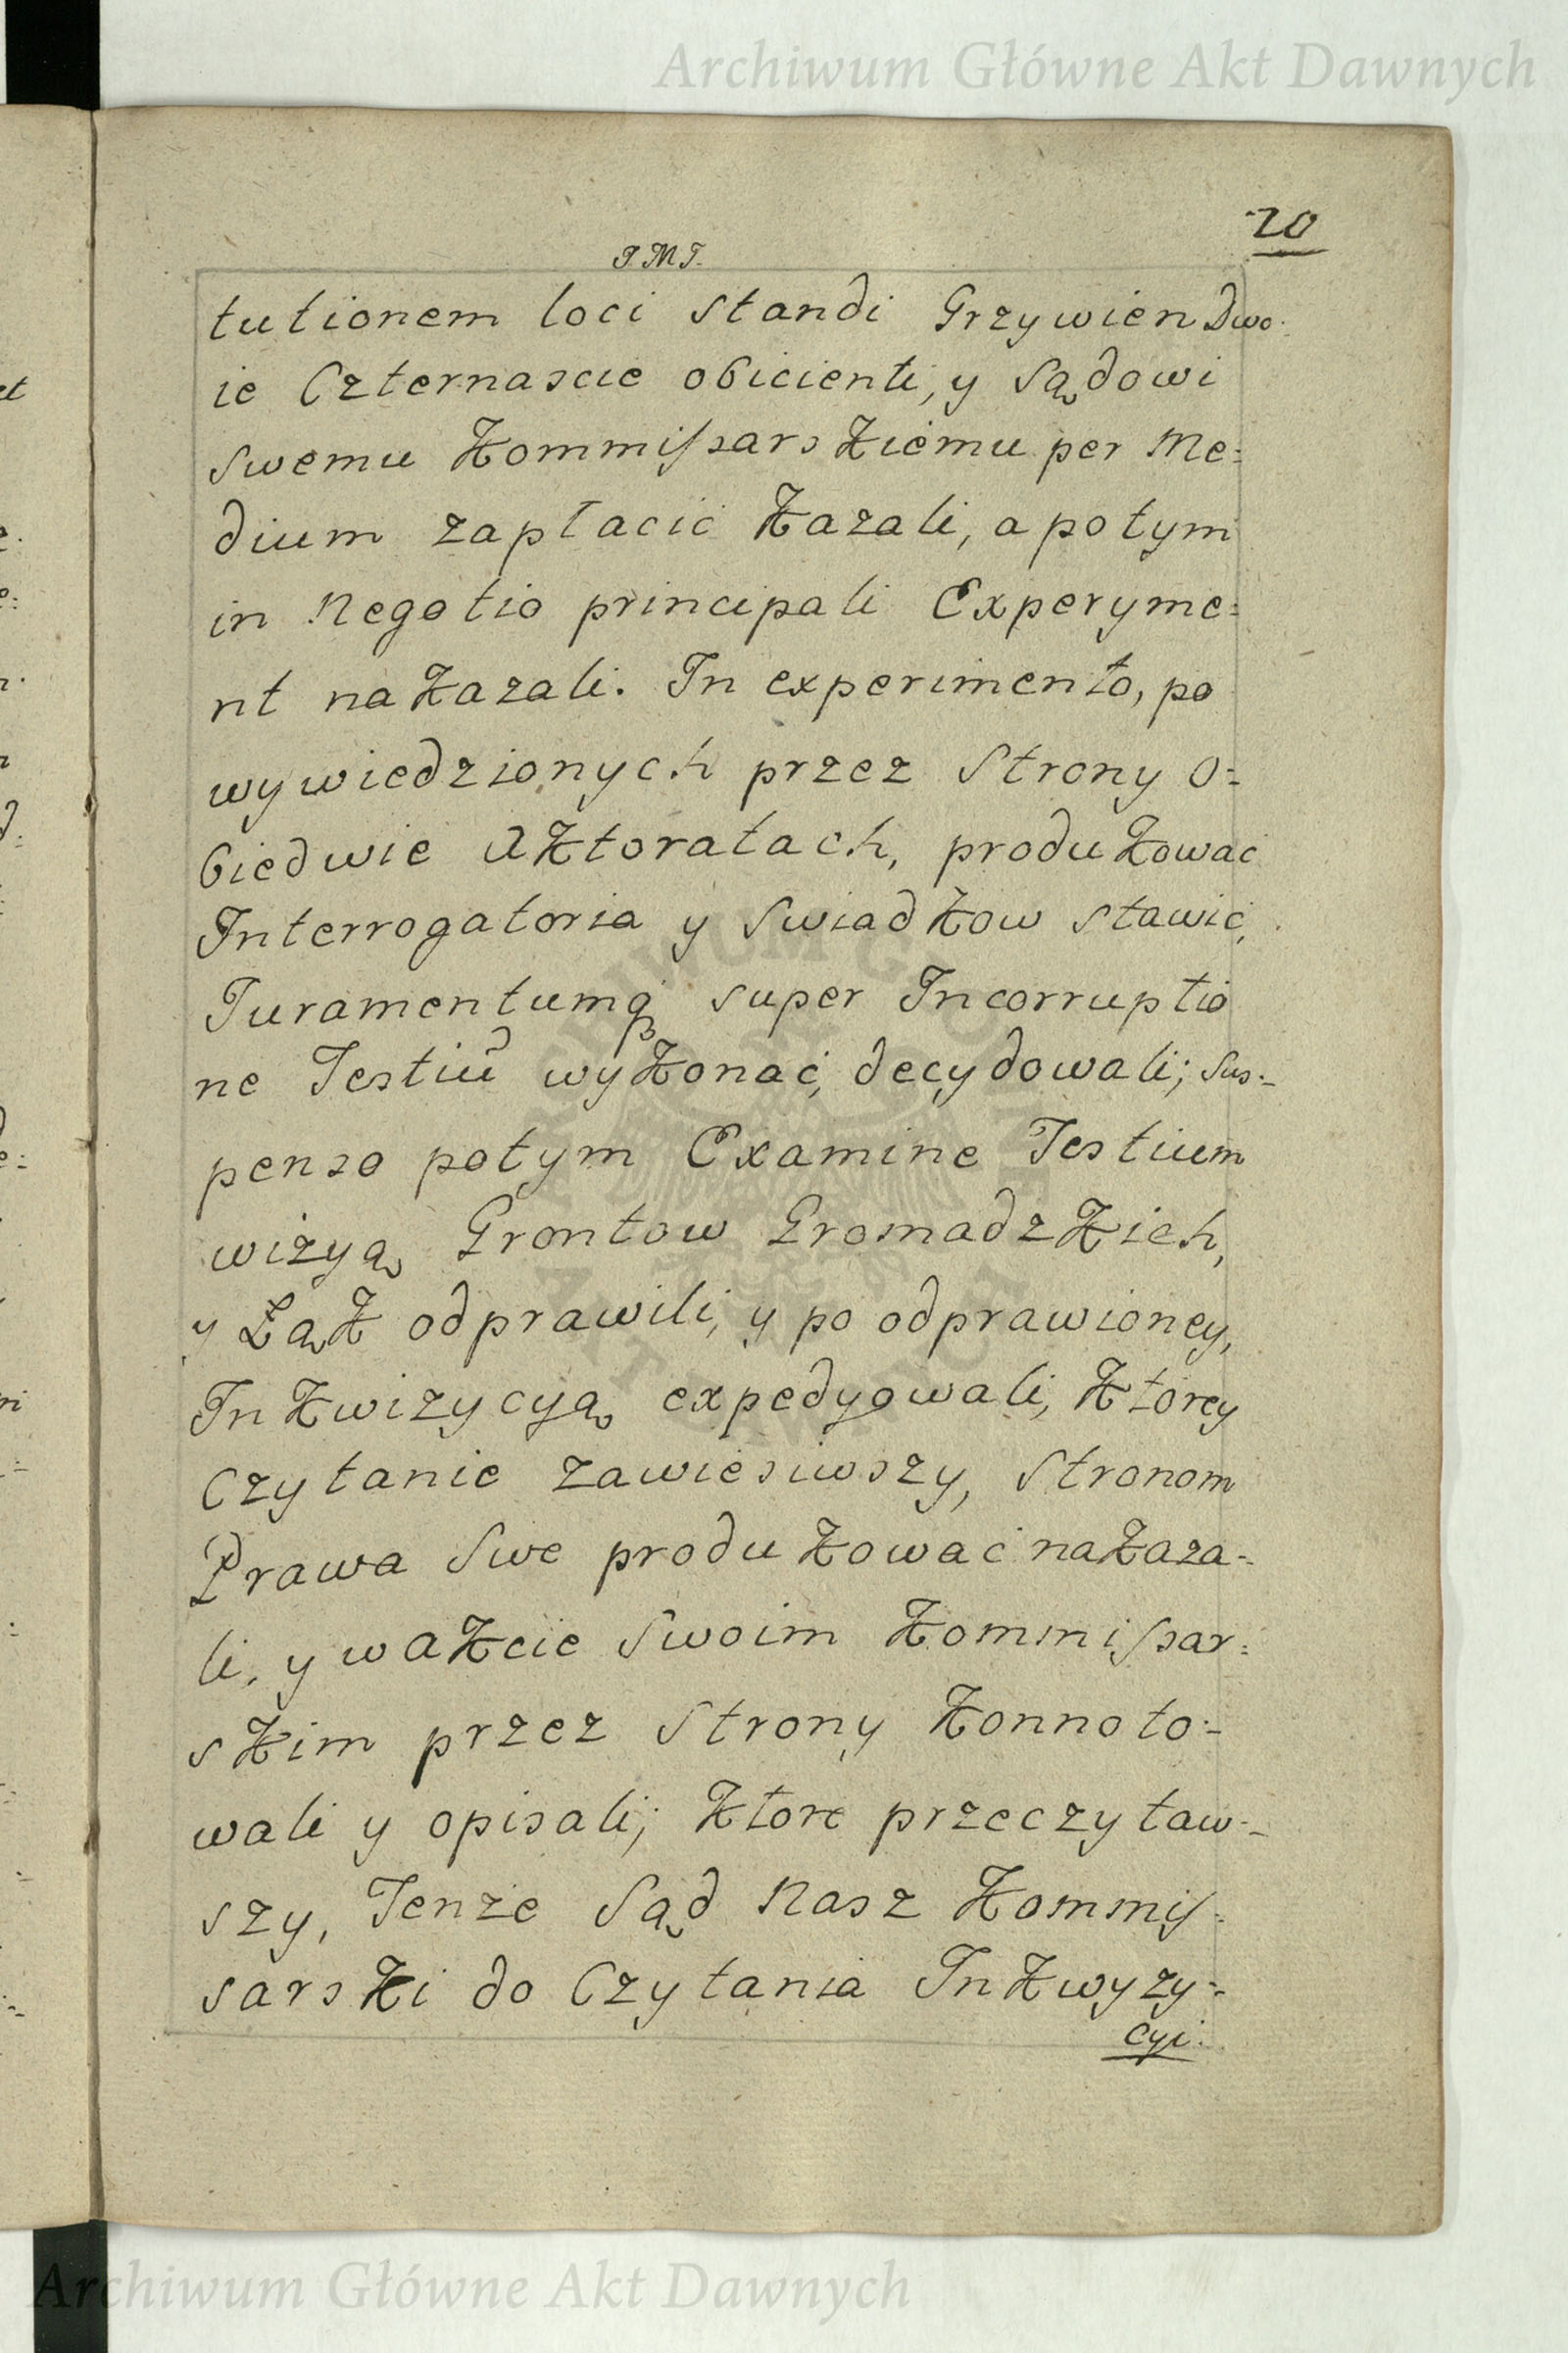 Archiwum Główne Akt Dawnych
20
J.M.J.
tutionem loci standi Grzywien Dwo:
ie Czternascie obicienti, y Sądowi
Swemu Kommissarskiemu per Me:
dium zapłacić kazali, a potym
in Negotio principali Experyme:
nt nakazali. In experimento, po
wywiedzionych przez Strony O:
biedwie Aktoratach, produkować
Interrogatoria y Swiadkow stawić,
Juramentumq super Incorruptio
ne Testiū wykonać, decydowali; Sus:
penso potym Examine Testium
wizyą Grontow Gromadzkich,
y Łąk odprawili, y po odprawioney,
Inkwizycyą expedyowali, Ktorey
Czytanie zawiesiwszy, Stronom
Prawa Swe produkować nakaza-
li, y w akcie Swoim Kommissar:
skim przez Strony Konnoto:
wali y opisali; Ktore przeczytaw:
szy, Tenże Sąd Nasz Kommis:
sarski do Czytania Inkwyzy:
cyi.
Archiwum Główne Akt Dawnych